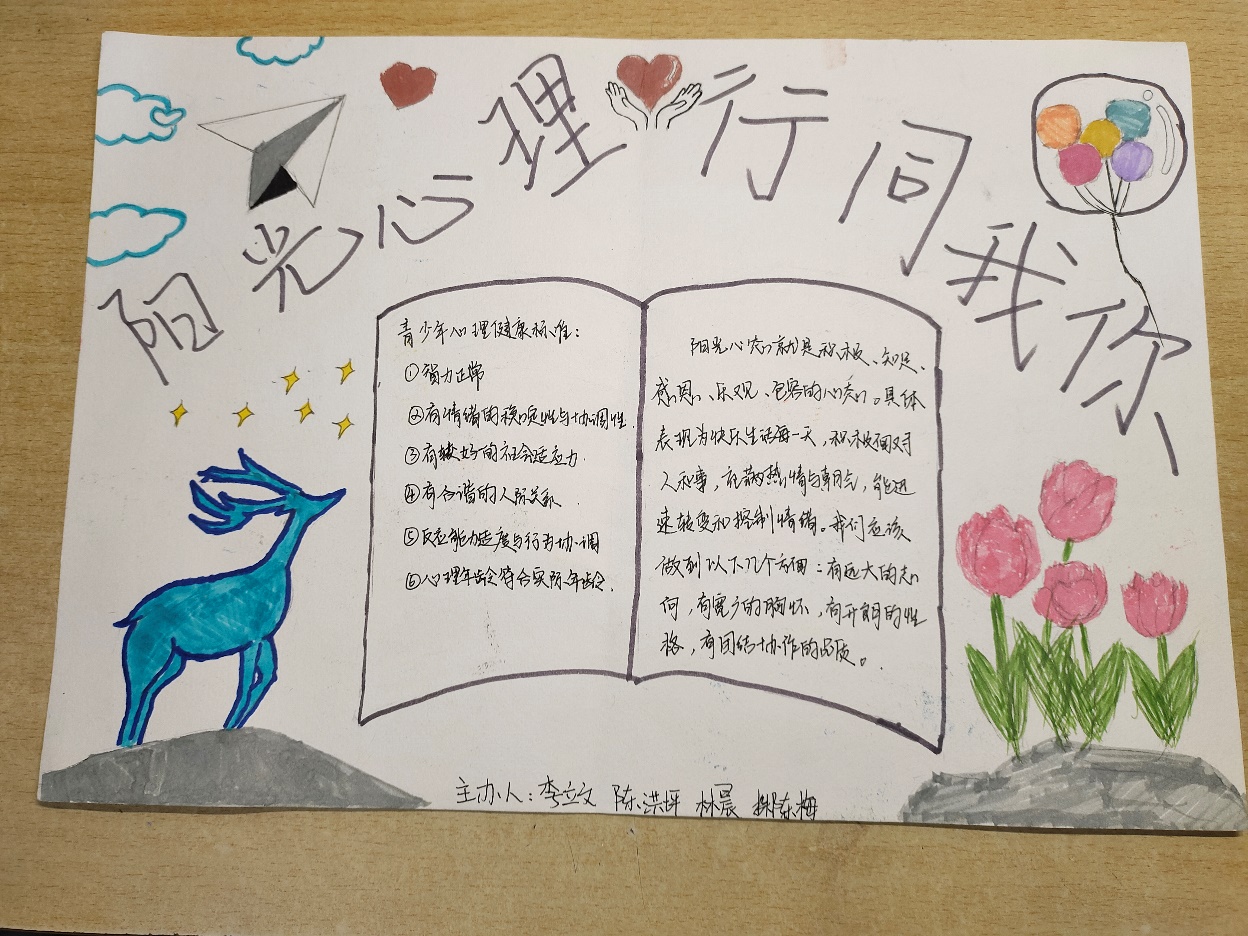 阳光心理行同我你
青少年心理健康标准:
①智力正常
②有情绪的稳定性与协调性.
③有较好的社会适应力.
④有合谐的人际关系.
⑤反应能力适度与行为协调
⑥心理年龄符合实际年龄.
阳光心态就是积极、知足、
感恩、乐观、包容的心态。具体
表现为快乐生活每一天,积极面对
人和事,充满热情与朝气,能迅
速转变和控制情绪。我们应该
做到以下几个方面:有远大的志
向,有宽广的胸怀,有开朗的性
格,有团结协作的品质。
主办人:李立文 陈洪坪 林晨 东梅